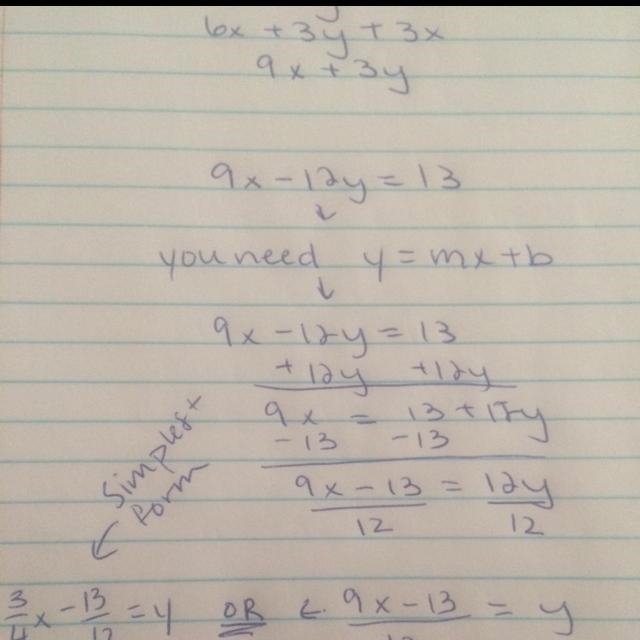 6x + 3y + 3x
9x + 3y
9x - 12y = 13
↓
you need y = mx + b
↓
9x - 12y = 13
+ 12y + 12y
9x = 13 + 12y
- 13 - 13
9x - 13 = 12y
12 12
Simplest
Form
3/4 x - 13/12 = y OR 9x - 13 = y